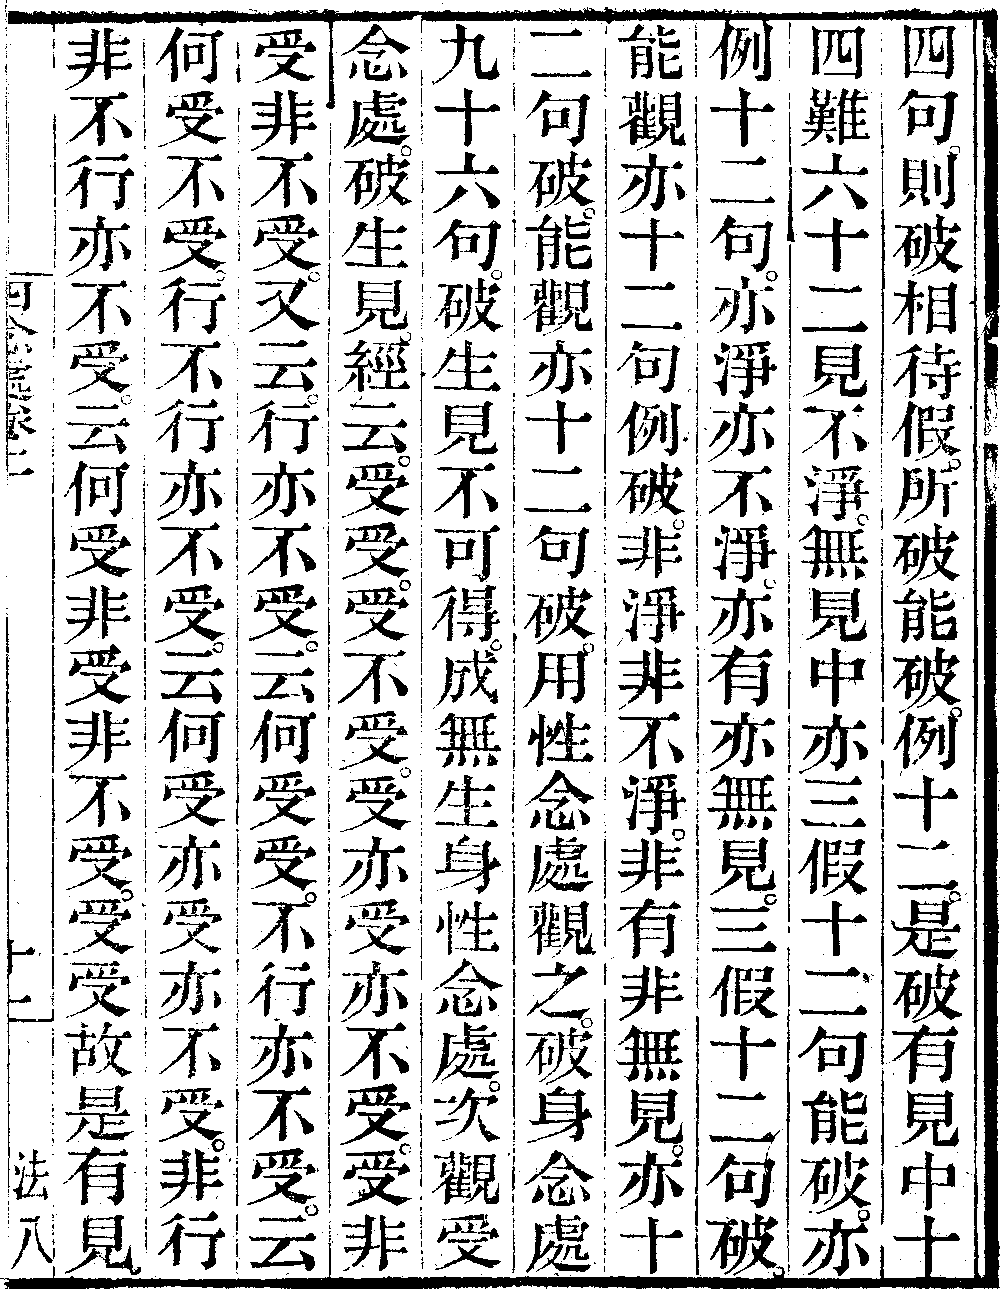 四句。則破相待假。所破能破。例十二。是破有見中十
四難六十二見不淨。無見中亦三假十二句能破。亦
例十二句。亦淨亦不淨。亦有亦無見。三假十二句破。
能觀亦十二句例破。非淨非不淨。非有非無見。亦十
二句破。能觀亦十二句破。用性念處觀之。破身念處
九十六句。破生見不可得。成無生身性念處。次觀受
念處。破生見。經云。受受。受不受。受亦受亦不受。受非
受非不受。又云。行亦不受。云何受受。不行亦不受。云
何受不受。行不行亦不受。云何受亦受亦不受。非行
非不行亦不受。云何受非受非不受。受受故是有見
四念處卷二
十一
法八